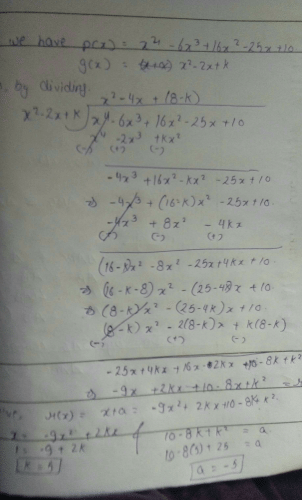 we have p(x) = x⁴ - 6x³ + 16x² - 25x + 10
g(x) = x² - 2x + k
by dividing
x² - 4x + (8-k)
x² - 2x + k ) x⁴ - 6x³ + 16x² - 25x + 10
x⁴ - 2x³ + kx²
(-) (+) (-)
-4x³ + 16x² - kx² - 25x + 10
⇒ -4x³ + (16-k)x² - 25x + 10
-4x³ + 8x² - 4kx
(+) (-) (+)
(16-k)x² - 8x² - 25x + 4kx + 10
⇒ (16-k-8)x² - (25-4k)x + 10
⇒ (8-k)x² - (25-4k)x + 10
(8-k)x² - 2(8-k)x + k(8-k)
(-) (+) (-)
-25x + 4kx + 16x - 2kx + 10 - 8k + k²
⇒ -9x + 2kx + 10 - 8k + k²
r(x) = x + a = -9x² + 2kx + 10 - 8k + k²
x = -9x + 2kx
10 - 8k + k² = a
1 = -9 + 2k
10 - 8(5) + 25 = a
k = 5
a = -5